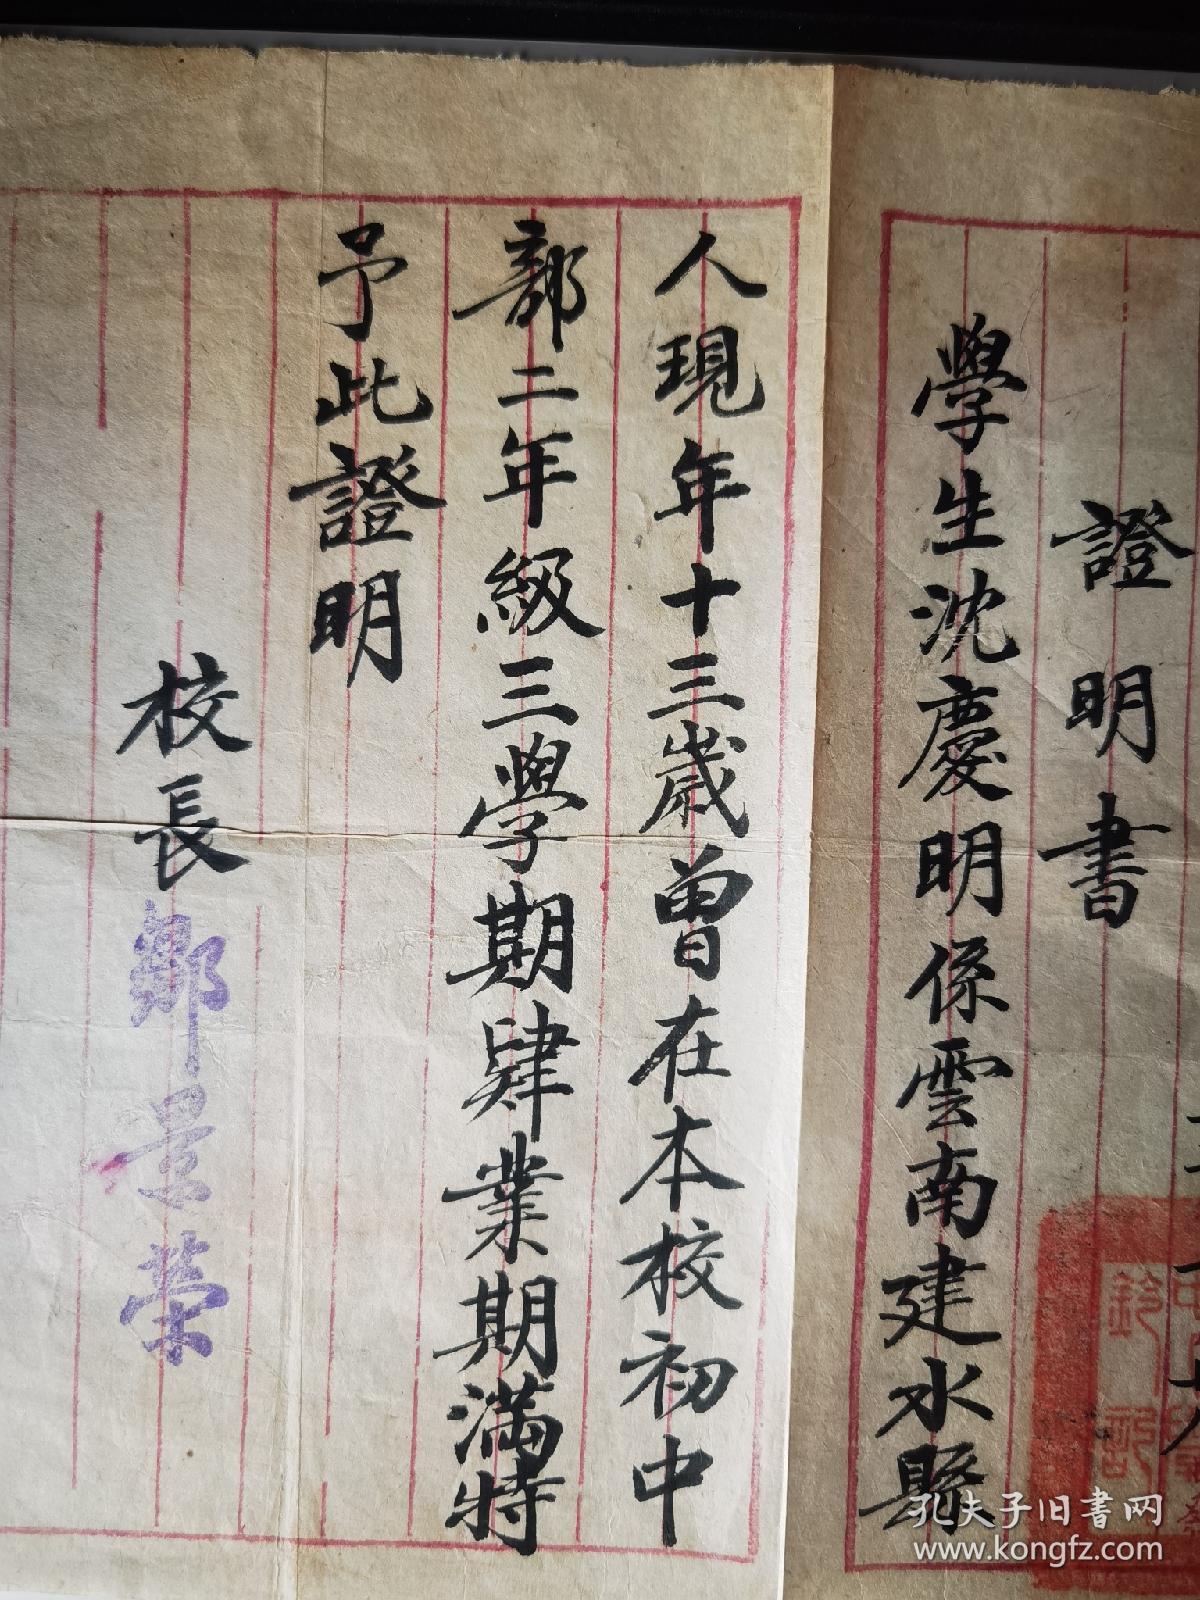 證明書
學生沈慶明係雲南建水縣
人現年十三歲曾在本校初中
部二年級三學期肄業期滿特
予此證明
校長鄒景榮
鈐記
孔夫子旧书网
www.kongfz.com